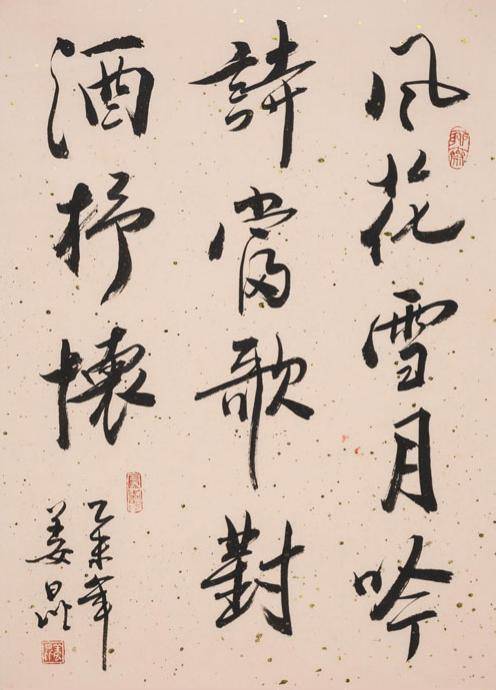 风花雪月吟
詩當歌對
酒抒懷
乙未年
姜昆